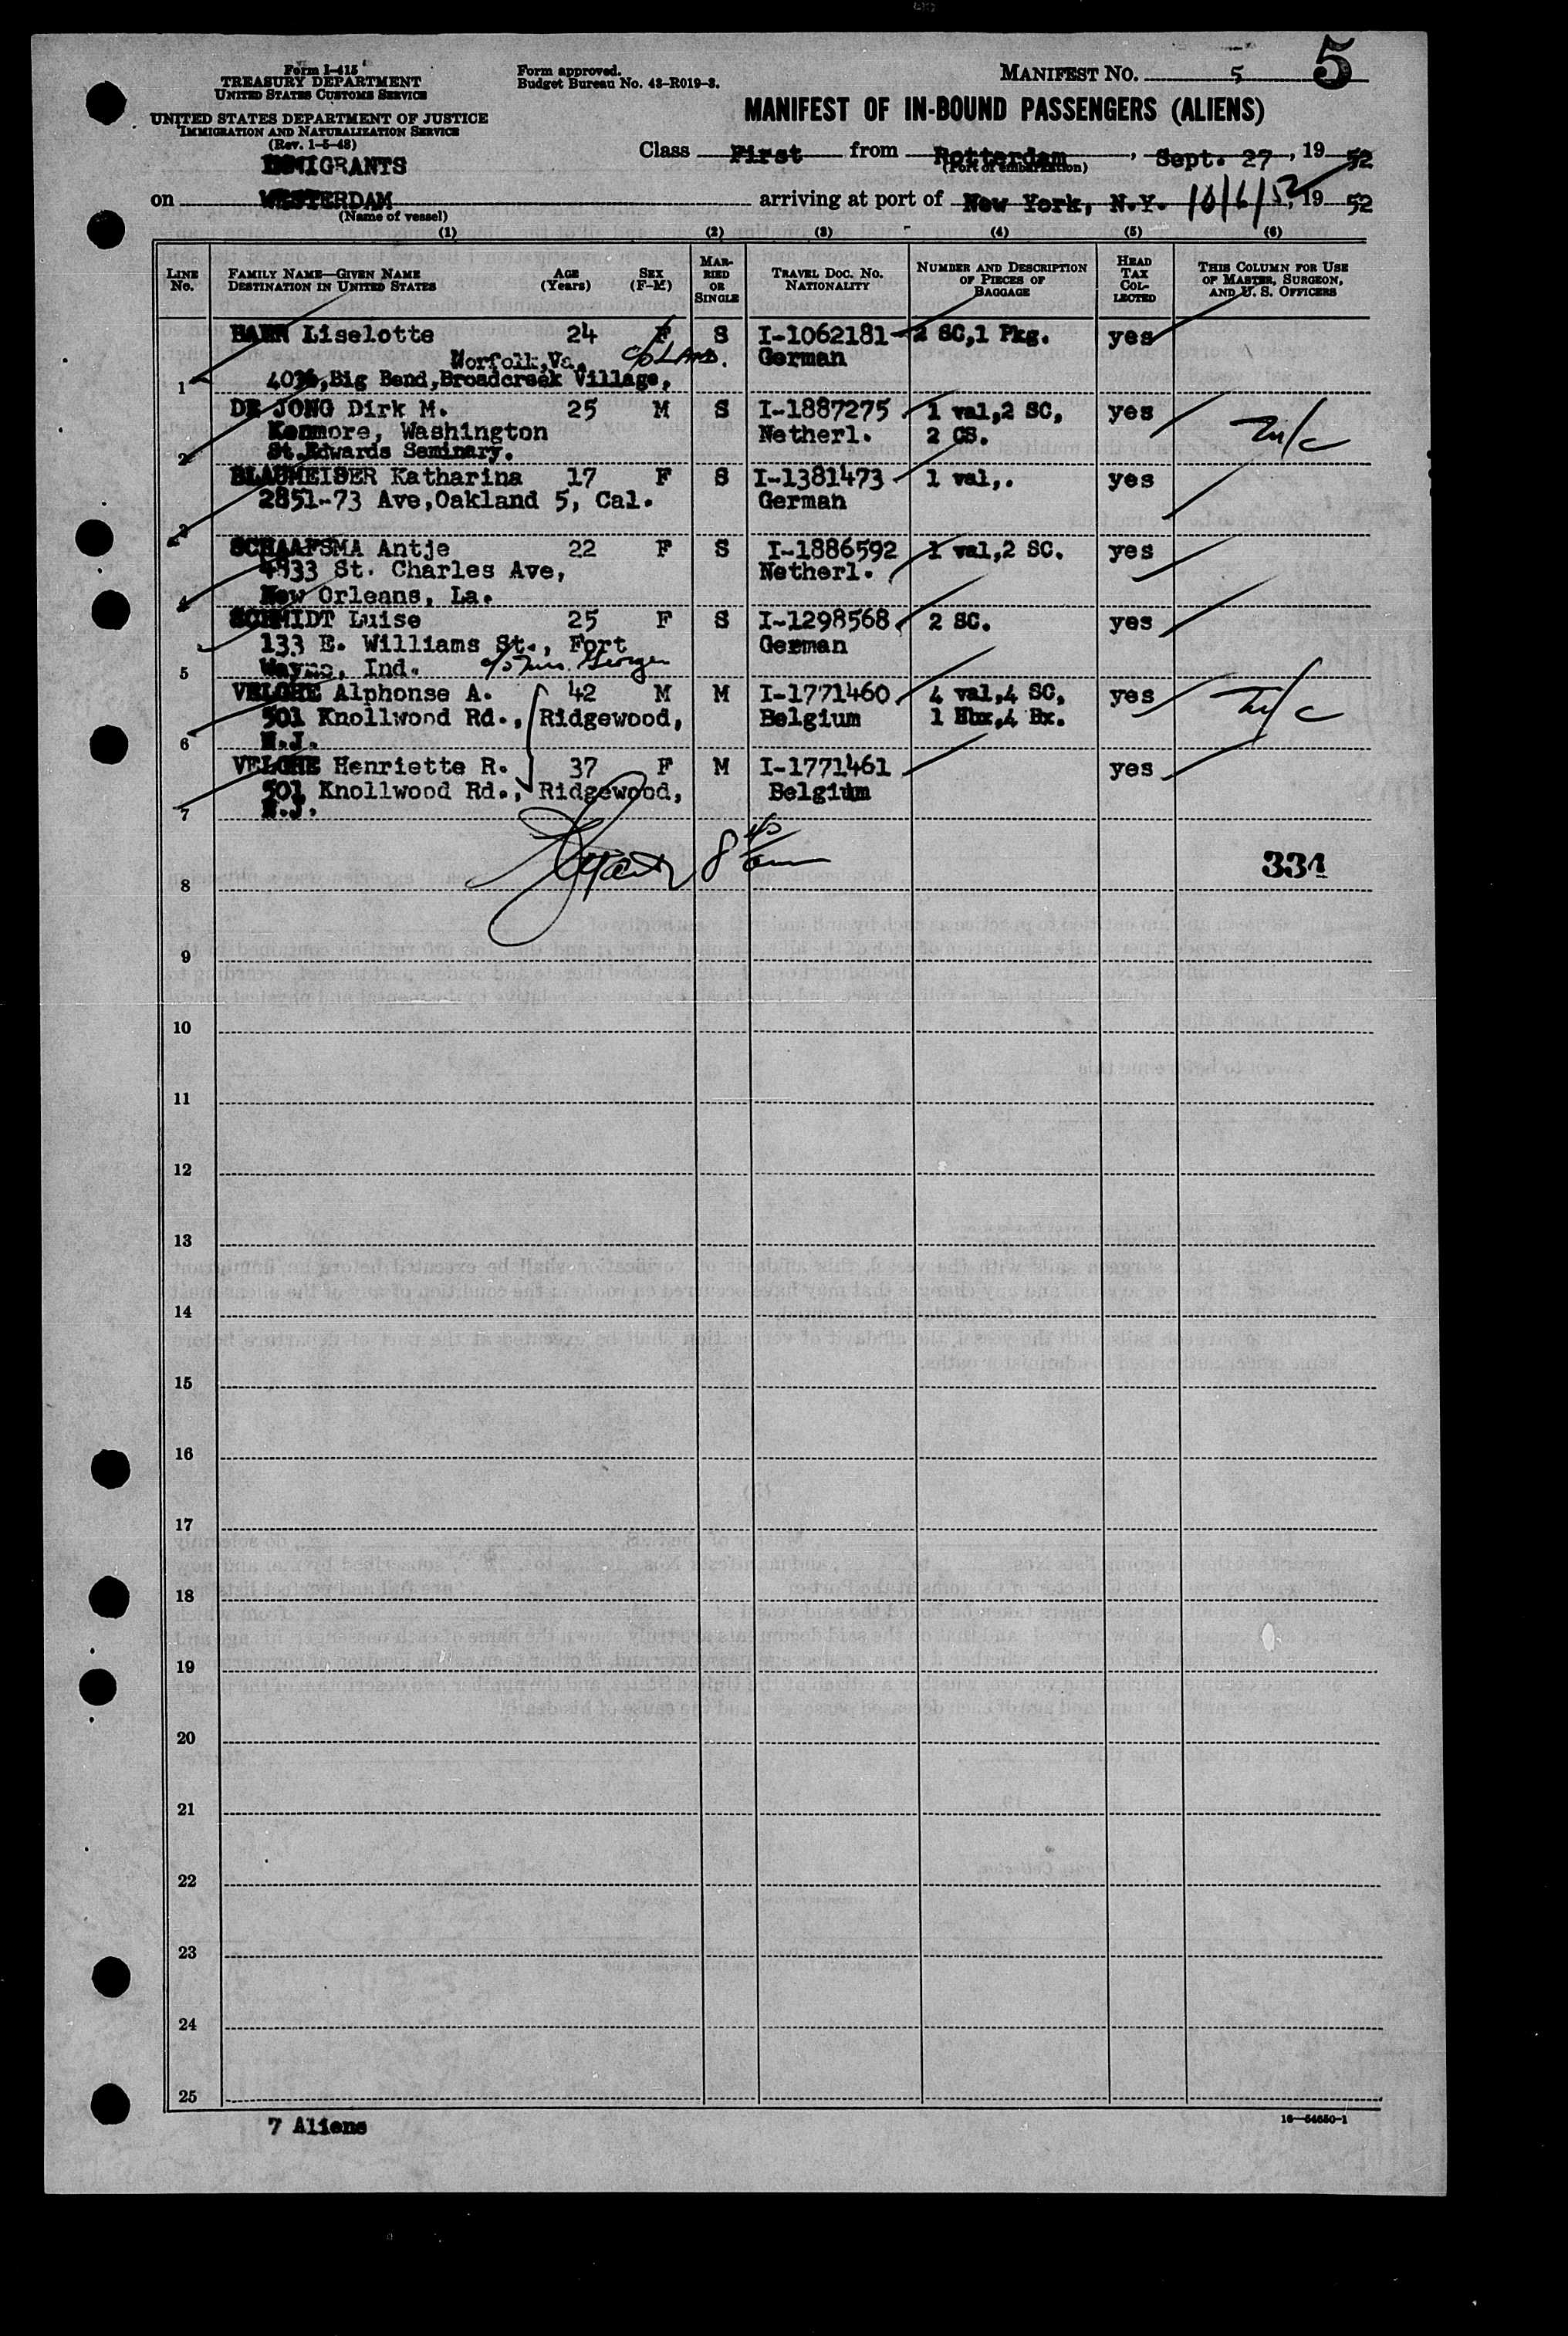 Form I-415
TREASURY DEPARTMENT
UNITED STATES CUSTOMS SERVICE
UNITED STATES DEPARTMENT OF JUSTICE
IMMIGRATION AND NATURALIZATION SERVICE
(Rev. 1-5-48)
Form approved.
Budget Bureau No. 43-R019-3.
MANIFEST NO. 5
5
MANIFEST OF IN-BOUND PASSENGERS (ALIENS)
IMMIGRANTS
Class First from Rotterdam, Sept. 27, 1952
(Port of embarkation)
on WESTERDAM arriving at port of New York, N.Y. 10/6/52, 1952
(Name of vessel)
(1) (2) (3) (4) (5) (6)
LINE No. FAMILY NAME—GIVEN NAME DESTINATION IN UNITED STATES AGE (Years) SEX (F-M) MARRIED OR SINGLE TRAVEL DOC. NO. NATIONALITY NUMBER AND DESCRIPTION OF PIECES OF BAGGAGE HEAD TAX COLLECTED THIS COLUMN FOR USE OF MASTER, SURGEON, AND U. S. OFFICERS
Liselotte 24 F S I-1062181 2 SC,1 Pkg. yes
Norfolk,Va. c/o German
1 Big Bend,Broadcreek Village,
DE JONG Dirk M. 25 M S I-1887275 1 val,2 SC, yes
Kenmore, Washington Netherl. 2 CS.
2 St.Edwards Seminary.
BLAUMEISER Katharina 17 F S I-1381473 1 val,. yes
2851-73 Ave,Oakland 5, Cal. German
3
SCHAAFSMA Antje 22 F S I-1886592 1 val,2 SC. yes
4533 St. Charles Ave, Netherl.
4 New Orleans, La.
SCHMIDT Luise 25 F S I-1298568 2 SC. yes
133 E. Williams St., Fort German
5 Wayne, Ind. c/o
VELGHE Alphonse A. 42 M M I-1771460 4 val,4 SC, yes
501 Knollwood Rd., Ridgewood, Belgium 1 Hbx,4 Bx.
6 N.J.
VELGHE Henriette R. 37 F M I-1771461 yes
501 Knollwood Rd., Ridgewood, Belgium
7 N.J.
8 334
9
10
11
12
13
14
15
16
17
18
19
20
21
22
23
24
25
7 Aliens
16—54650-1